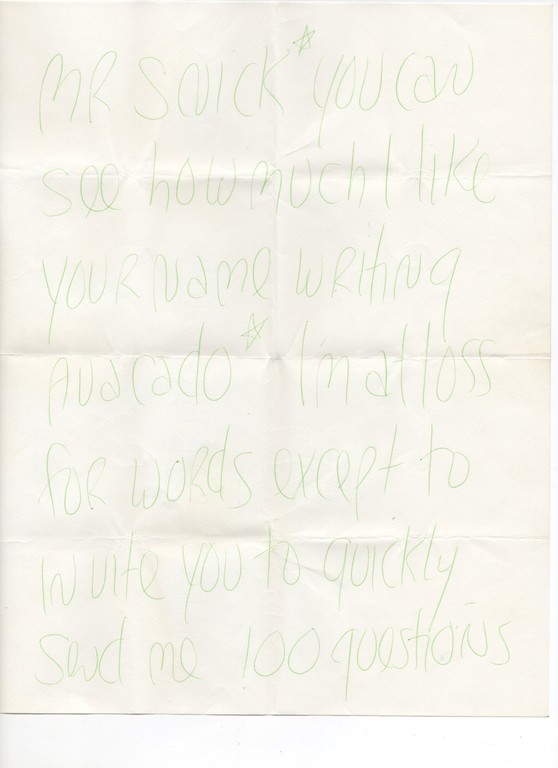 MR SNICK☆ YOU CAN
see how much I like
YOUR NAME WRITING
AVACADO☆ I'm at loss
for words except to
invite you to quickly
send me 100 questions